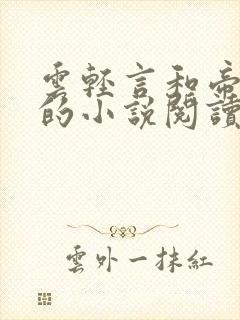 雲輕言和帝
的小說閱讀
雲外一抹紅